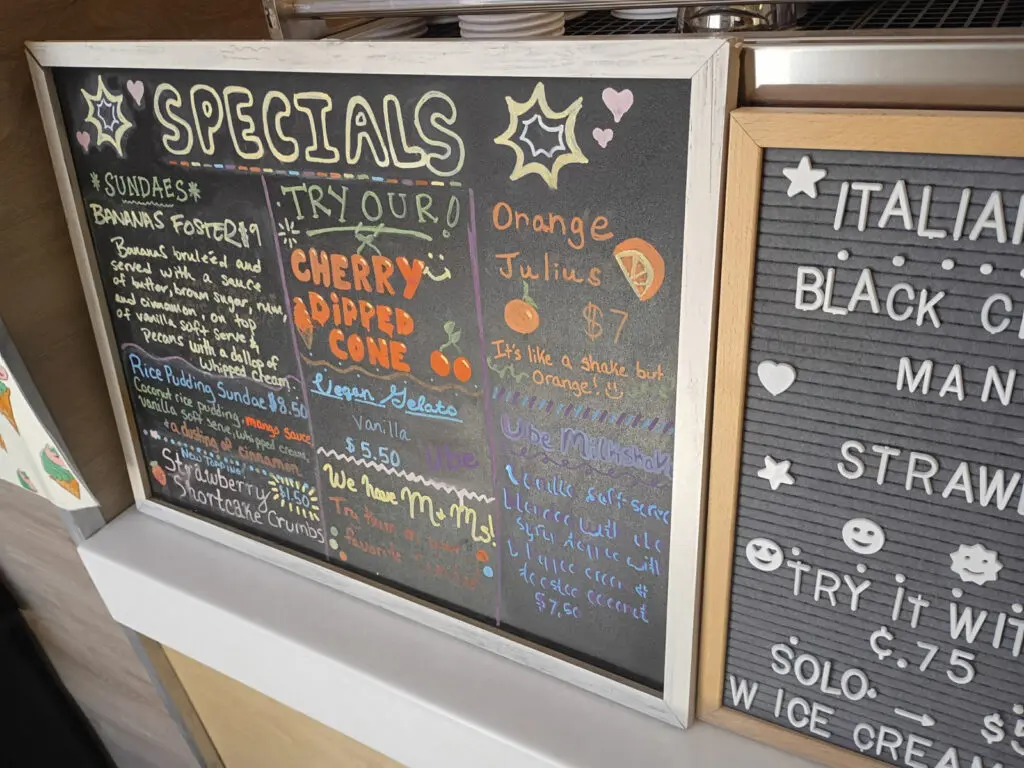 SPECIALS
*SUNDAES*
BANANAS FOSTER $9
Bananas bruleéd and
served with a sauce
of butter, brown sugar, rum,
and cinnamon, on top
of vanilla soft serve &
pecans with a dollop of
whipped cream.
Rice Pudding Sundae $8.50
Coconut rice pudding, mango sauce
vanilla soft serve, whipped cream,
+ a dusting of cinnamon.
New Topping!
Strawberry $1.50
Shortcake Crumbs
TRY OUR!
CHERRY
DIPPED
CONE
Vegan Gelato
Vanilla
$5.50 Ube
We have M+Ms!
Try them
favorite
Orange
Julius
$7
It's like a shake but
Orange!
Ube Milkshake
Vanilla soft-serve
with
$7.50
ITALIA
BLACK C
MAN
STRAW
TRY iT WIT
¢.75
SOLO → $5
W ICE CREAM